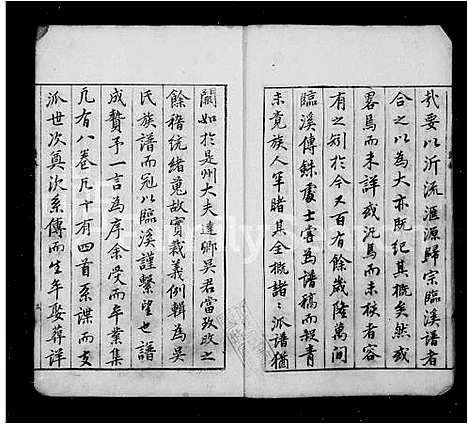 哉要以沂流滙源歸宗臨溪譜者
合之以為大亦既紀其概矣然或
畧焉而未詳或氾焉而未核者容
有之矧於今又百有餘歲隆萬間
臨溪傳銖處士嘗為譜稿而殺青
未竟族人罕睹其全概諸〻派譜猶
闕如於是州大夫逹卿吳君當攷政之
餘稽統緒蒐故實裁義例輯為吳
氏族譜而冠以臨溪謹繫望也譜
成贅予一言為序余受而卒業集
凡有八卷凡十有四首系諜而支
派世次奠次系傳而生年娶葬詳